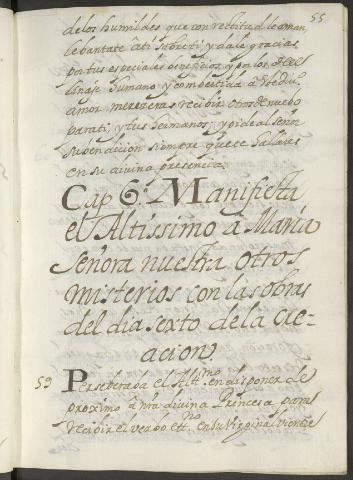 55
de los humildes que con rectitud le aman
lebantate a ti sobre ti, y dale gracias
por tus especiales beneficios y por los de el
linaje humano y combertida a este diu.
amor mereceras recibir otros de nuebo
para ti, y tus hermanos; y pide al señor
su bendicion siempre que te hallares
en su divina presencia.
Cap 6. Manifiesta
el Altissimo a Maria
Señora nuestra otros
misterios con las obras
del dia sexto de la cre-
acion.
59 Perseberaba el Altmo. en disponer de
proximo a nra divina Princesa para
recibir el verbo ettno. en su Virginal Vientre